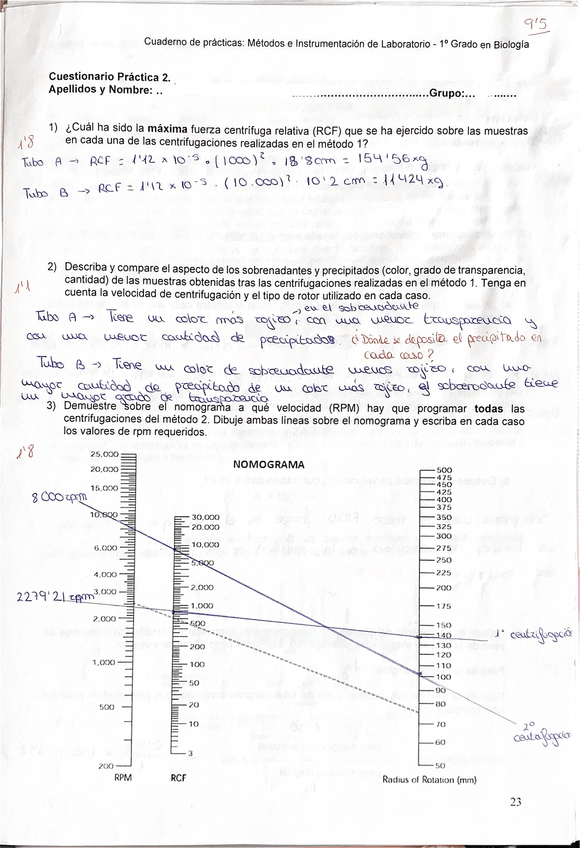 9'5
Cuaderno de prácticas: Métodos e Instrumentación de Laboratorio - 1º Grado en Biología
Cuestionario Práctica 2.
Apellidos y Nombre: .. ....................................Grupo:... ........
1) ¿Cuál ha sido la máxima fuerza centrífuga relativa (RCF) que se ha ejercido sobre las muestras
en cada una de las centrifugaciones realizadas en el método 1?
1'8
Tubo A → RCF = 1'12 x 10⁻⁵ · (1000)² · 18'8cm = 154'56xg
Tubo B → RCF = 1'12 x 10⁻⁵ · (10.000)² · 10'2 cm = 11424xg.
2) Describa y compare el aspecto de los sobrenadantes y precipitados (color, grado de transparencia,
cantidad) de las muestras obtenidas tras las centrifugaciones realizadas en el método 1. Tenga en
cuenta la velocidad de centrifugación y el tipo de rotor utilizado en cada caso.
1'1
→ en el sobrenadante
Tubo A → Tiene un color más rojizo, con una menor transparencia y
con una menor cantidad de precipitados. ¿Dónde se deposita el precipitado en
cada caso?
Tubo B → Tiene un color de sobrenadante menos rojizo, con una
mayor cantidad de precipitado de un color más rojizo, el sobrenadante tiene
un mayor grado de transparencia
3) Demuestre sobre el nomograma a qué velocidad (RPM) hay que programar todas las
centrifugaciones del método 2. Dibuje ambas líneas sobre el nomograma y escriba en cada caso
los valores de rpm requeridos.
1'8
NOMOGRAMA
25.000
20,000
15,000
10.000
6.000
4,000
3.000
2,000
1,000
500
200
RPM
8000rpm
2279'21rpm
30,000
20,000
10,000
5.000
2,000
1.000
500
200
100
50
20
10
3
RCF
500
475
450
425
400
375
350
325
300
275
250
225
200
175
150
140
130
120
110
100
90
80
70
60
50
Radius of Rotation (mm)
1ª centrifugación
2º
centrifugación
23